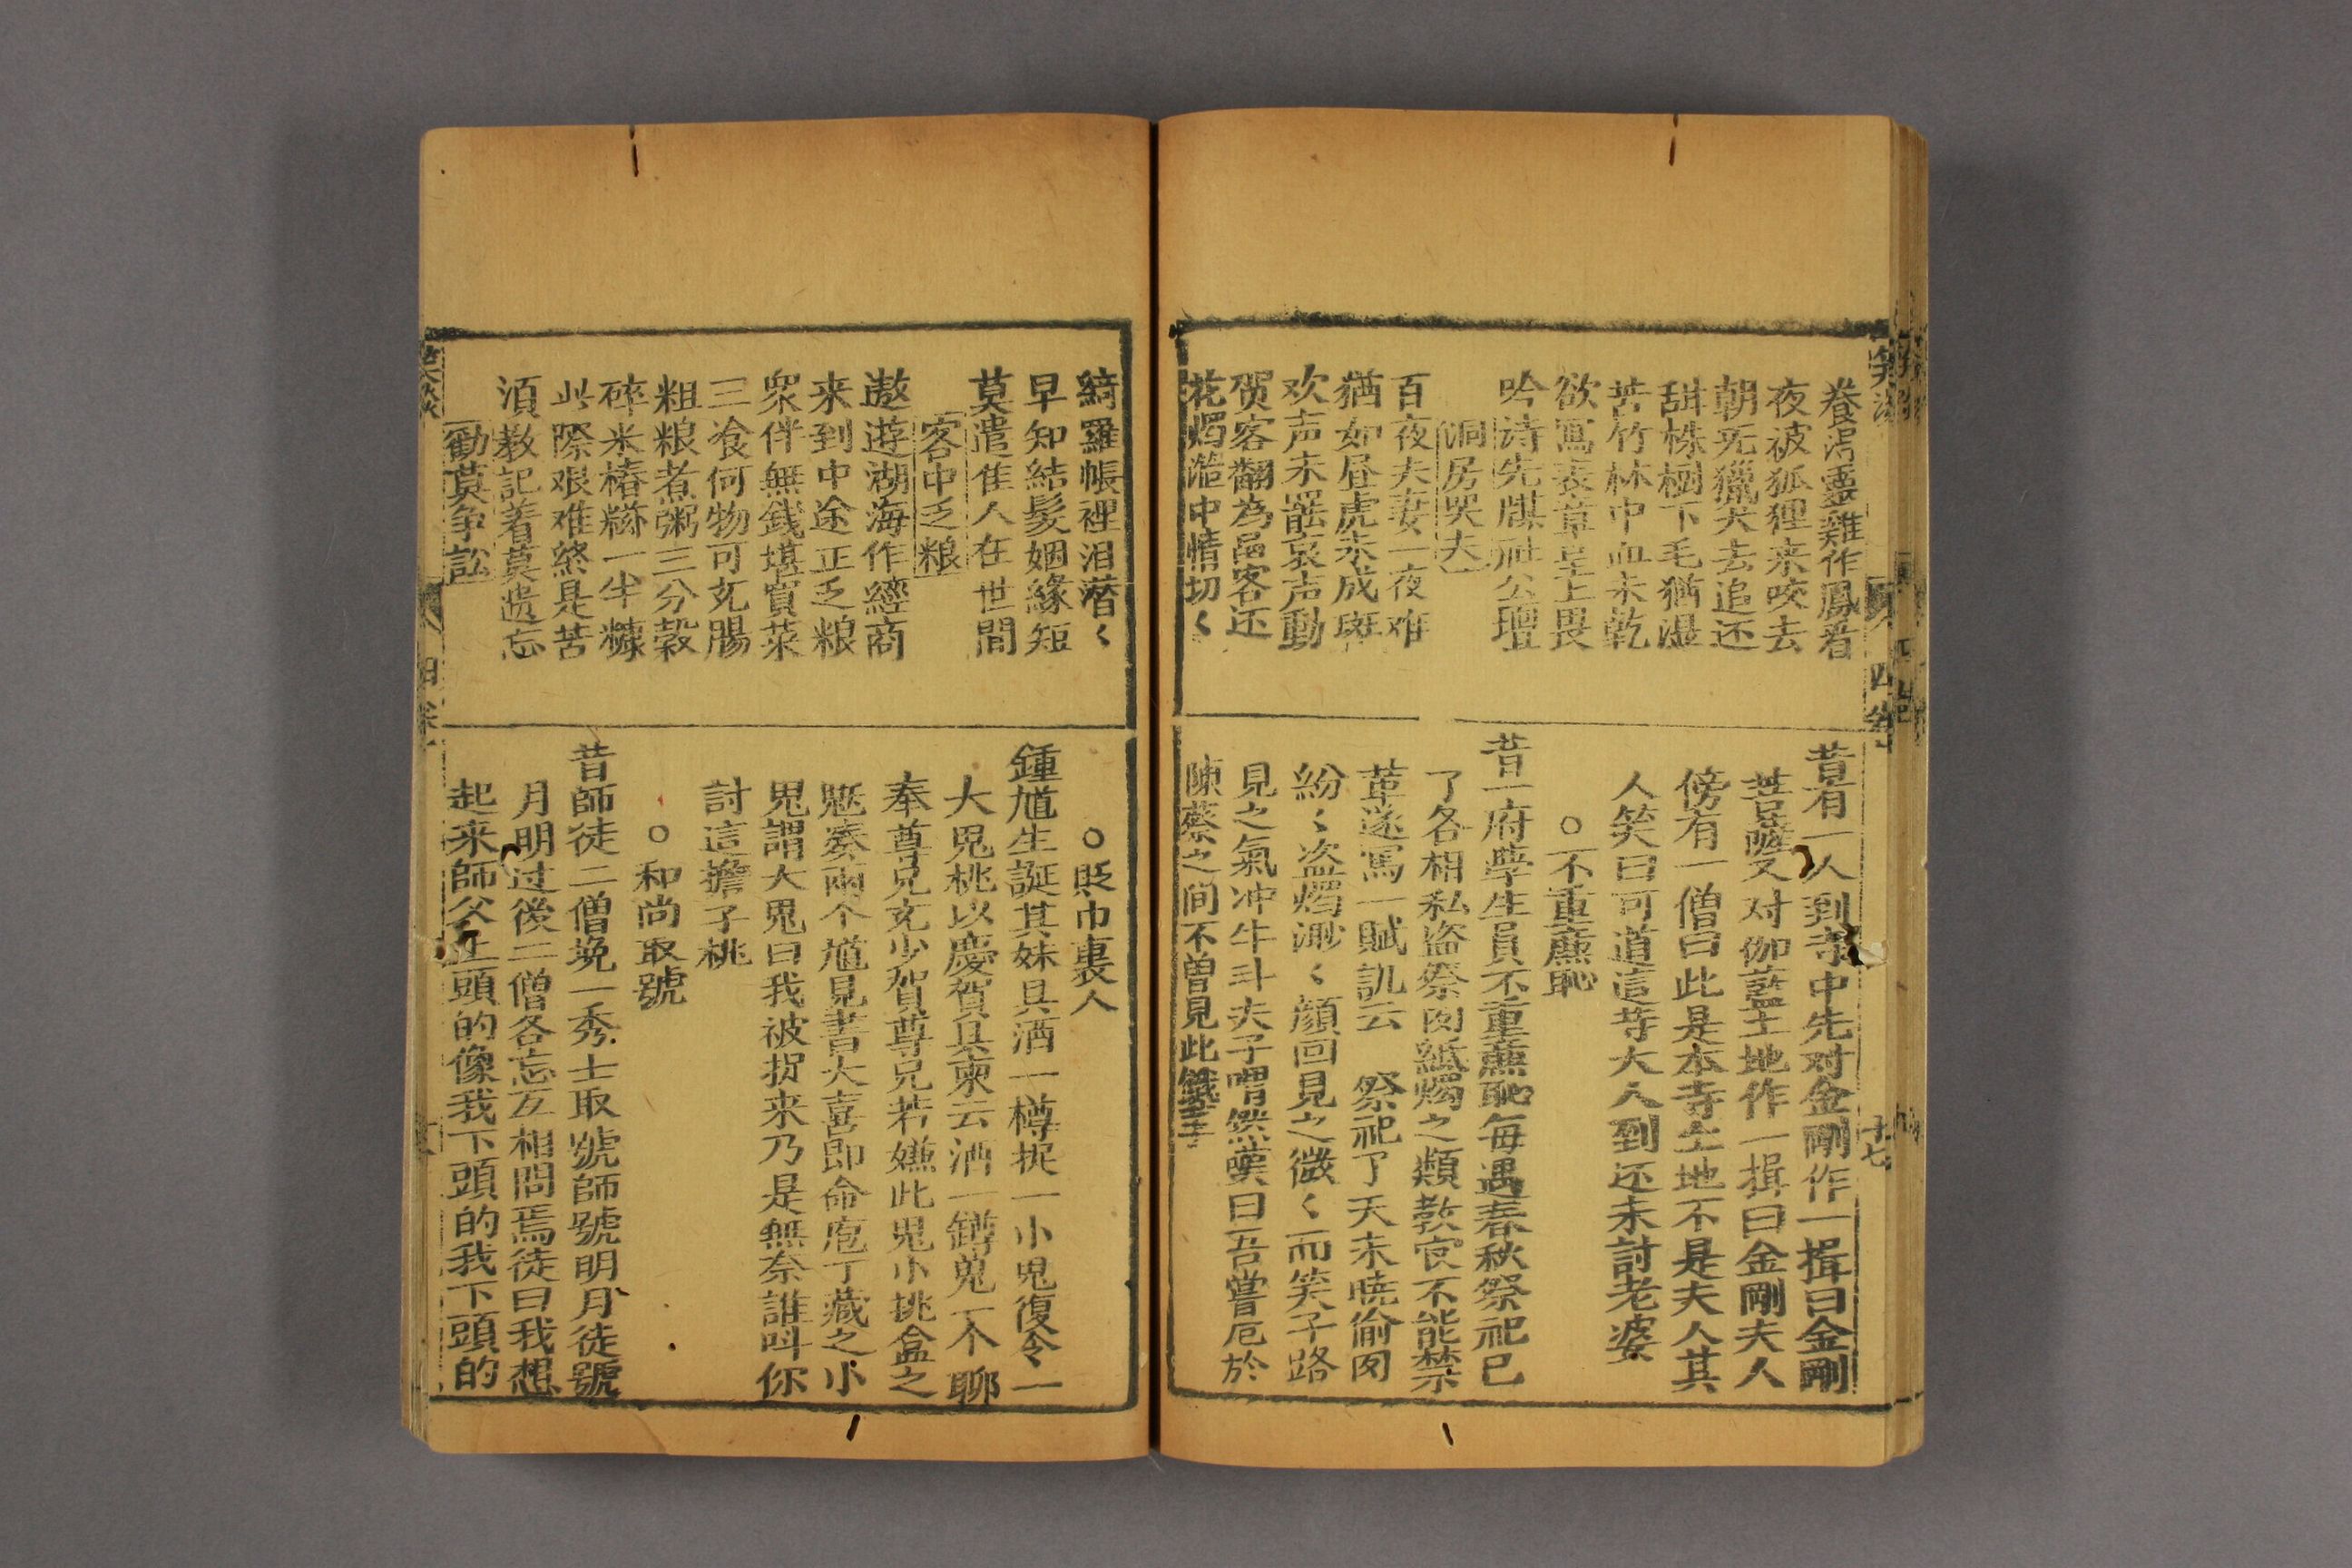 養淂靈雞作鳳看
夜被狐狸来咬去
朝旡獵犬去追还
甜株樹下毛猶湿
苦竹林中血未乾
欲寫表章呈上畏
吟诗先牒社公壇
洞房哭夫
百夜夫妻一夜难
猶如昼虎未成斑
欢声未罷哀声動
贺客翻為邑客还
花燭筵中情切〱
綺羅帳裡泪潜〱
早知結髮姻緣短
莫遣隹人在世間
客中乏粮
遨遊湖海作經商
来到中途正乏粮
衆伴無錢堪買菜
三飡何物可充腸
粗粮煮粥三分穀
碎米樁粝一半糠
此際艰难終是苦
湏教記着莫遗忘
勸莫争訟
昔有一人到寺中先对金剛作一揖曰金剛
菩薩又对伽藍土地作一揖曰金剛夫人
傍有一僧曰此是本寺土地不是夫人其
人笑曰可道這等大人到还未討老婆
○不重㢘恥
昔一府學生員不重㢘恥每遇春秋祭祀已
了各相私盗祭肉紙燭之類教官不能禁
革遂寫一賦訕云 祭祀了天未曉偷肉
紛〱盗燭渺〱顔回見之微〱而笑子路
見之氣冲牛斗夫子喟然嘆曰吾嘗厄於
陳蔡之间不曽見此餓莩
○貶巾裏人
鍾馗生誕其妹具酒一樽捉一小鬼復令一
大鬼桃以慶賀具柬云酒一罇鬼一个聊
奉尊兄充少賀尊兄若嫌此鬼小挑盒之
鬼凑两个馗見書大喜即命庖丁藏之小
鬼謂大鬼曰我被捉来乃是無奈誰呌你
討這擔子桃
○和尚取號
昔師徒二僧挽一秀士取號師號明月徒號
月明过後二僧各忘互相問焉徒曰我想
起来師父上頭的像我下頭的我下頭的